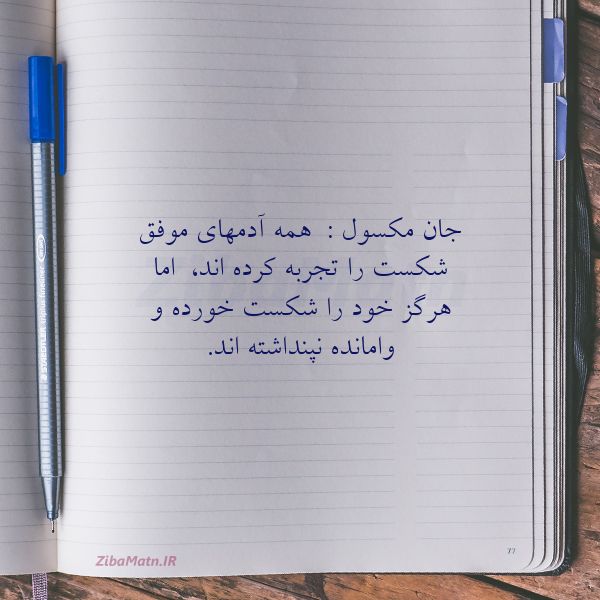 جان مکسول : همه آدمهای موفق
شکست را تجربه کرده اند، اما
هرگز خود را شکست خورده و
وامانده نپنداشته اند.
ZibaMatn.IR